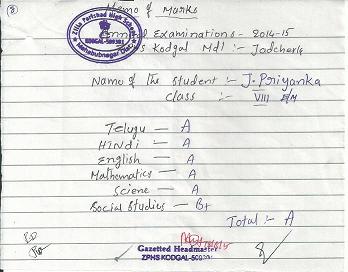 Memo of Marks
Annual Examinations - 2014-15
Zilla Parishad High School
KODGAL-509301
Mahabubnagar Dist.
Kodgal Mdl :- Jadcherla
Name of the Student :- J. Priyanka
Class :- VIII E/M
Telugu - A
HINDI - A
English - A
Mathematics - A
Sciene - A
Social Studies - B+
Total :- A
Gazetted Headmaster
ZPHS KODGAL-509301